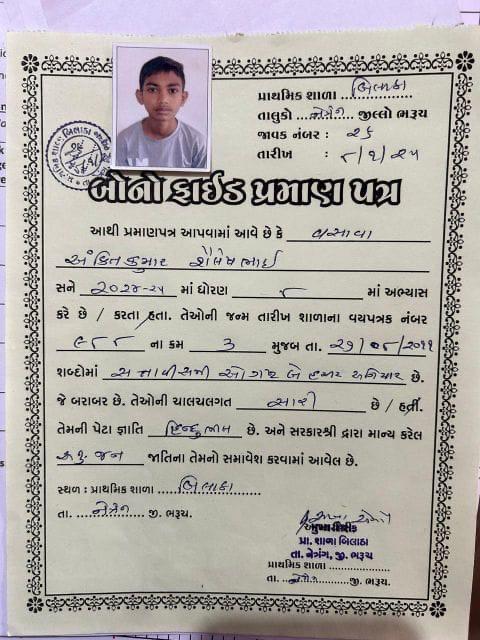 પ્રાથમિક શાળા બિલાઠા
તાલુકો નેત્રંગ જીલ્લો ભરૂચ
જાવક નંબર : ૨૬
તારીખ : ૮/૧/૨૫
બોનોફાઈડ પ્રમાણ પત્ર
આથી પ્રમાણપત્ર આપવામાં આવે છે કે વસાવા
અંકિતકુમાર શૈલેષભાઈ
સને ૨૦૨૪-૨૫ માં ધોરણ ૮ માં અભ્યાસ
કરે છે / કરતા હતા. તેઓની જન્મ તારીખ શાળાના વયપત્રક નંબર
૯૮૮ ના ક્રમ 3 મુજબ તા. ૨૭/૦૮/૨૦૧૧
શબ્દોમાં સત્તાવીસમી ઓગષ્ટ બે હજાર અગિયાર છે.
જે બરાબર છે. તેઓની ચાલચલગત સારી છે / હતી.
તેમની પેટા જ્ઞાતિ હિન્દુ ભીલ છે. અને સરકારશ્રી દ્રારા માન્ય કરેલ
અનુ. જન જાતિના તેમનો સમાવેશ કરવામાં આવેલ છે.
સ્થળ : પ્રાથમિક શાળા બિલાઠા
તા. નેત્રંગ જી. ભરૂચ.
મુખ્ય શિક્ષક
પ્રા. શાળા બિલાઠા
તા. નેત્રંગ, જી. ભરૂચ
પ્રાથમિક શાળા
તા. નેત્રંગ જી. ભરૂચ.